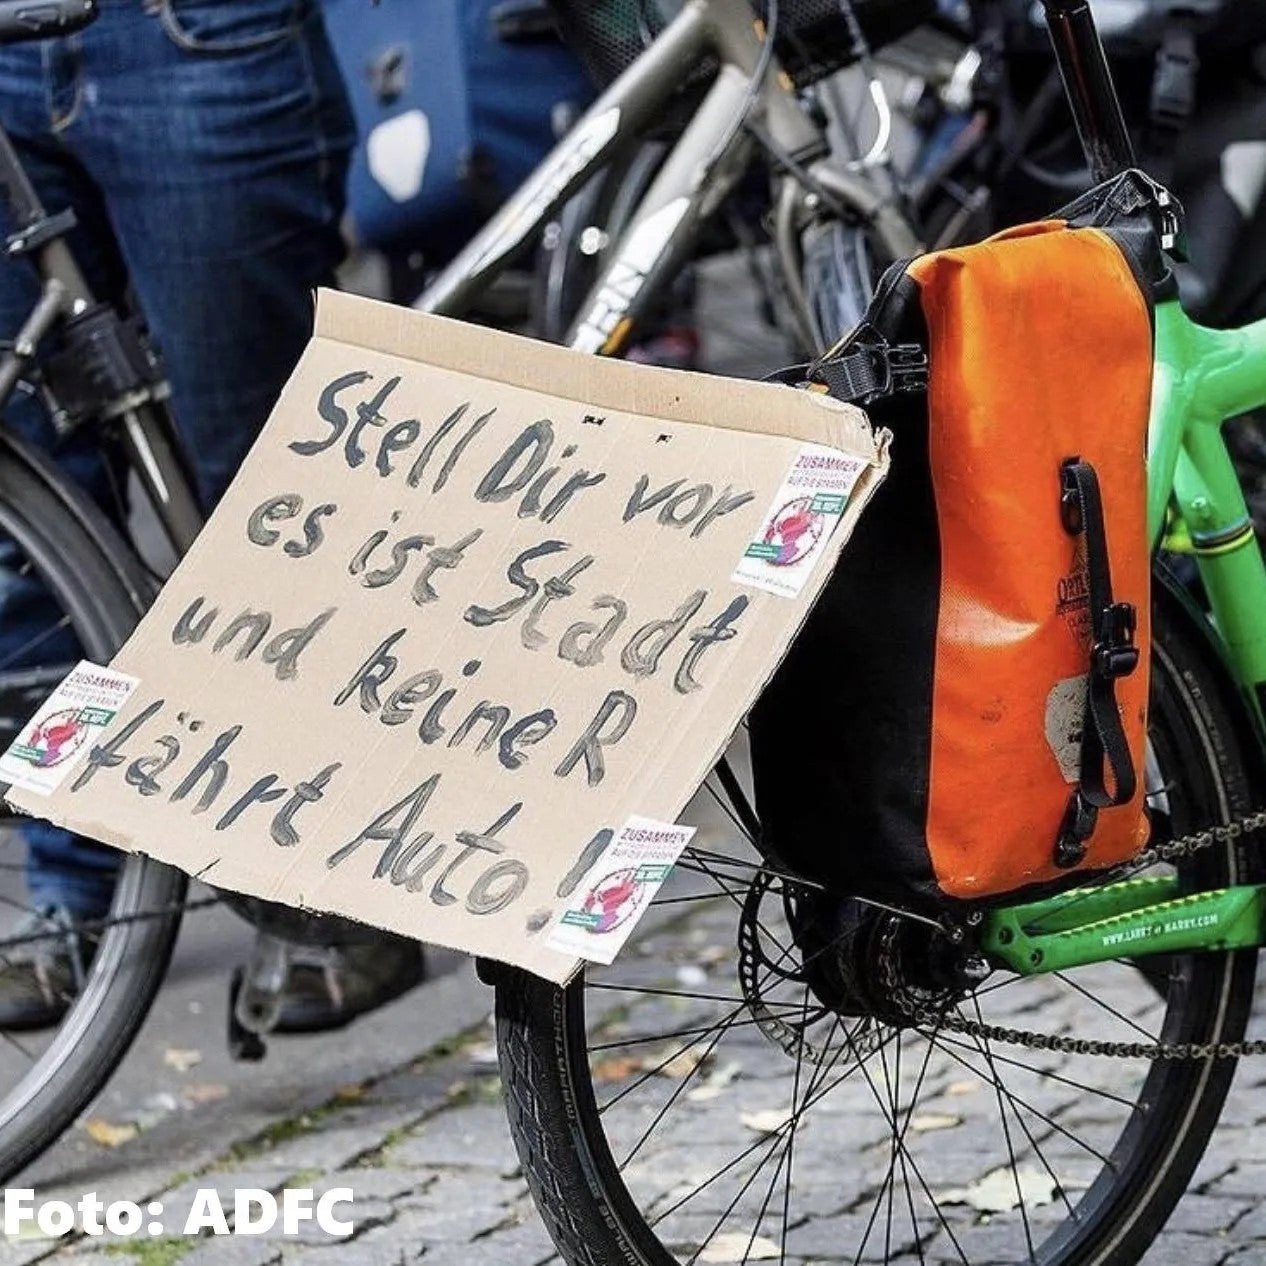 Stell Dir vor
es ist Stadt
und keine R
fährt Auto!
ZUSAMMEN
AUF DIE STRASSEN!
ZUSAMMEN
AUF DIE STRASSEN!
ZUSAMMEN
AUF DIE STRASSEN!
WWW.LARRYVSHARRY.COM
Foto: ADFC